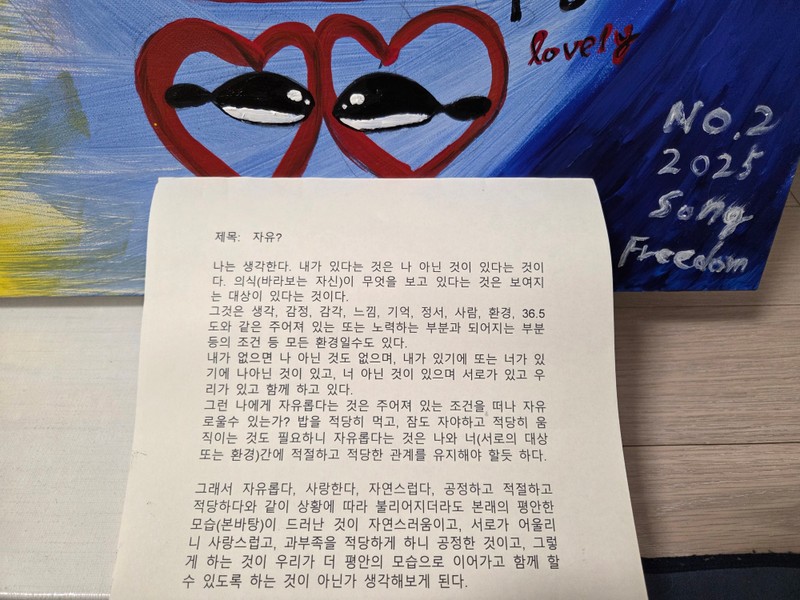 lovely
NO.2
2025
Song
Freedom
제목: 자유?
나는 생각한다. 내가 있다는 것은 나 아닌 것이 있다는 것이
다. 의식(바라보는 자신)이 무엇을 보고 있다는 것은 보여지
는 대상이 있다는 것이다.
그것은 생각, 감정, 감각, 느낌, 기억, 정서, 사람, 환경, 36.5
도와 같은 주어져 있는 또는 노력하는 부분과 되어지는 부분
등의 조건 등 모든 환경일수도 있다.
내가 없으면 나 아닌 것도 없으며, 내가 있기에 또는 너가 있
기에 나아닌 것이 있고, 너 아닌 것이 있으며 서로가 있고 우
리가 있고 함께 하고 있다.
그런 나에게 자유롭다는 것은 주어져 있는 조건을 떠나 자유
로울수 있는가? 밥을 적당히 먹고, 잠도 자야하고 적당히 움
직이는 것도 필요하니 자유롭다는 것은 나와 너(서로의 대상
또는 환경)간에 적절하고 적당한 관계를 유지해야 할듯 하다.
그래서 자유롭다, 사랑한다, 자연스럽다, 공정하고 적절하고
적당하다와 같이 상황에 따라 불리어지더라도 본래의 평안한
모습(본바탕)이 드러난 것이 자연스러움이고, 서로가 어울리
니 사랑스럽고, 과부족을 적당하게 하니 공정한 것이고, 그렇
게 하는 것이 우리가 더 평안의 모습으로 이어가고 함께 할
수 있도록 하는 것이 아닌가 생각해보게 된다.